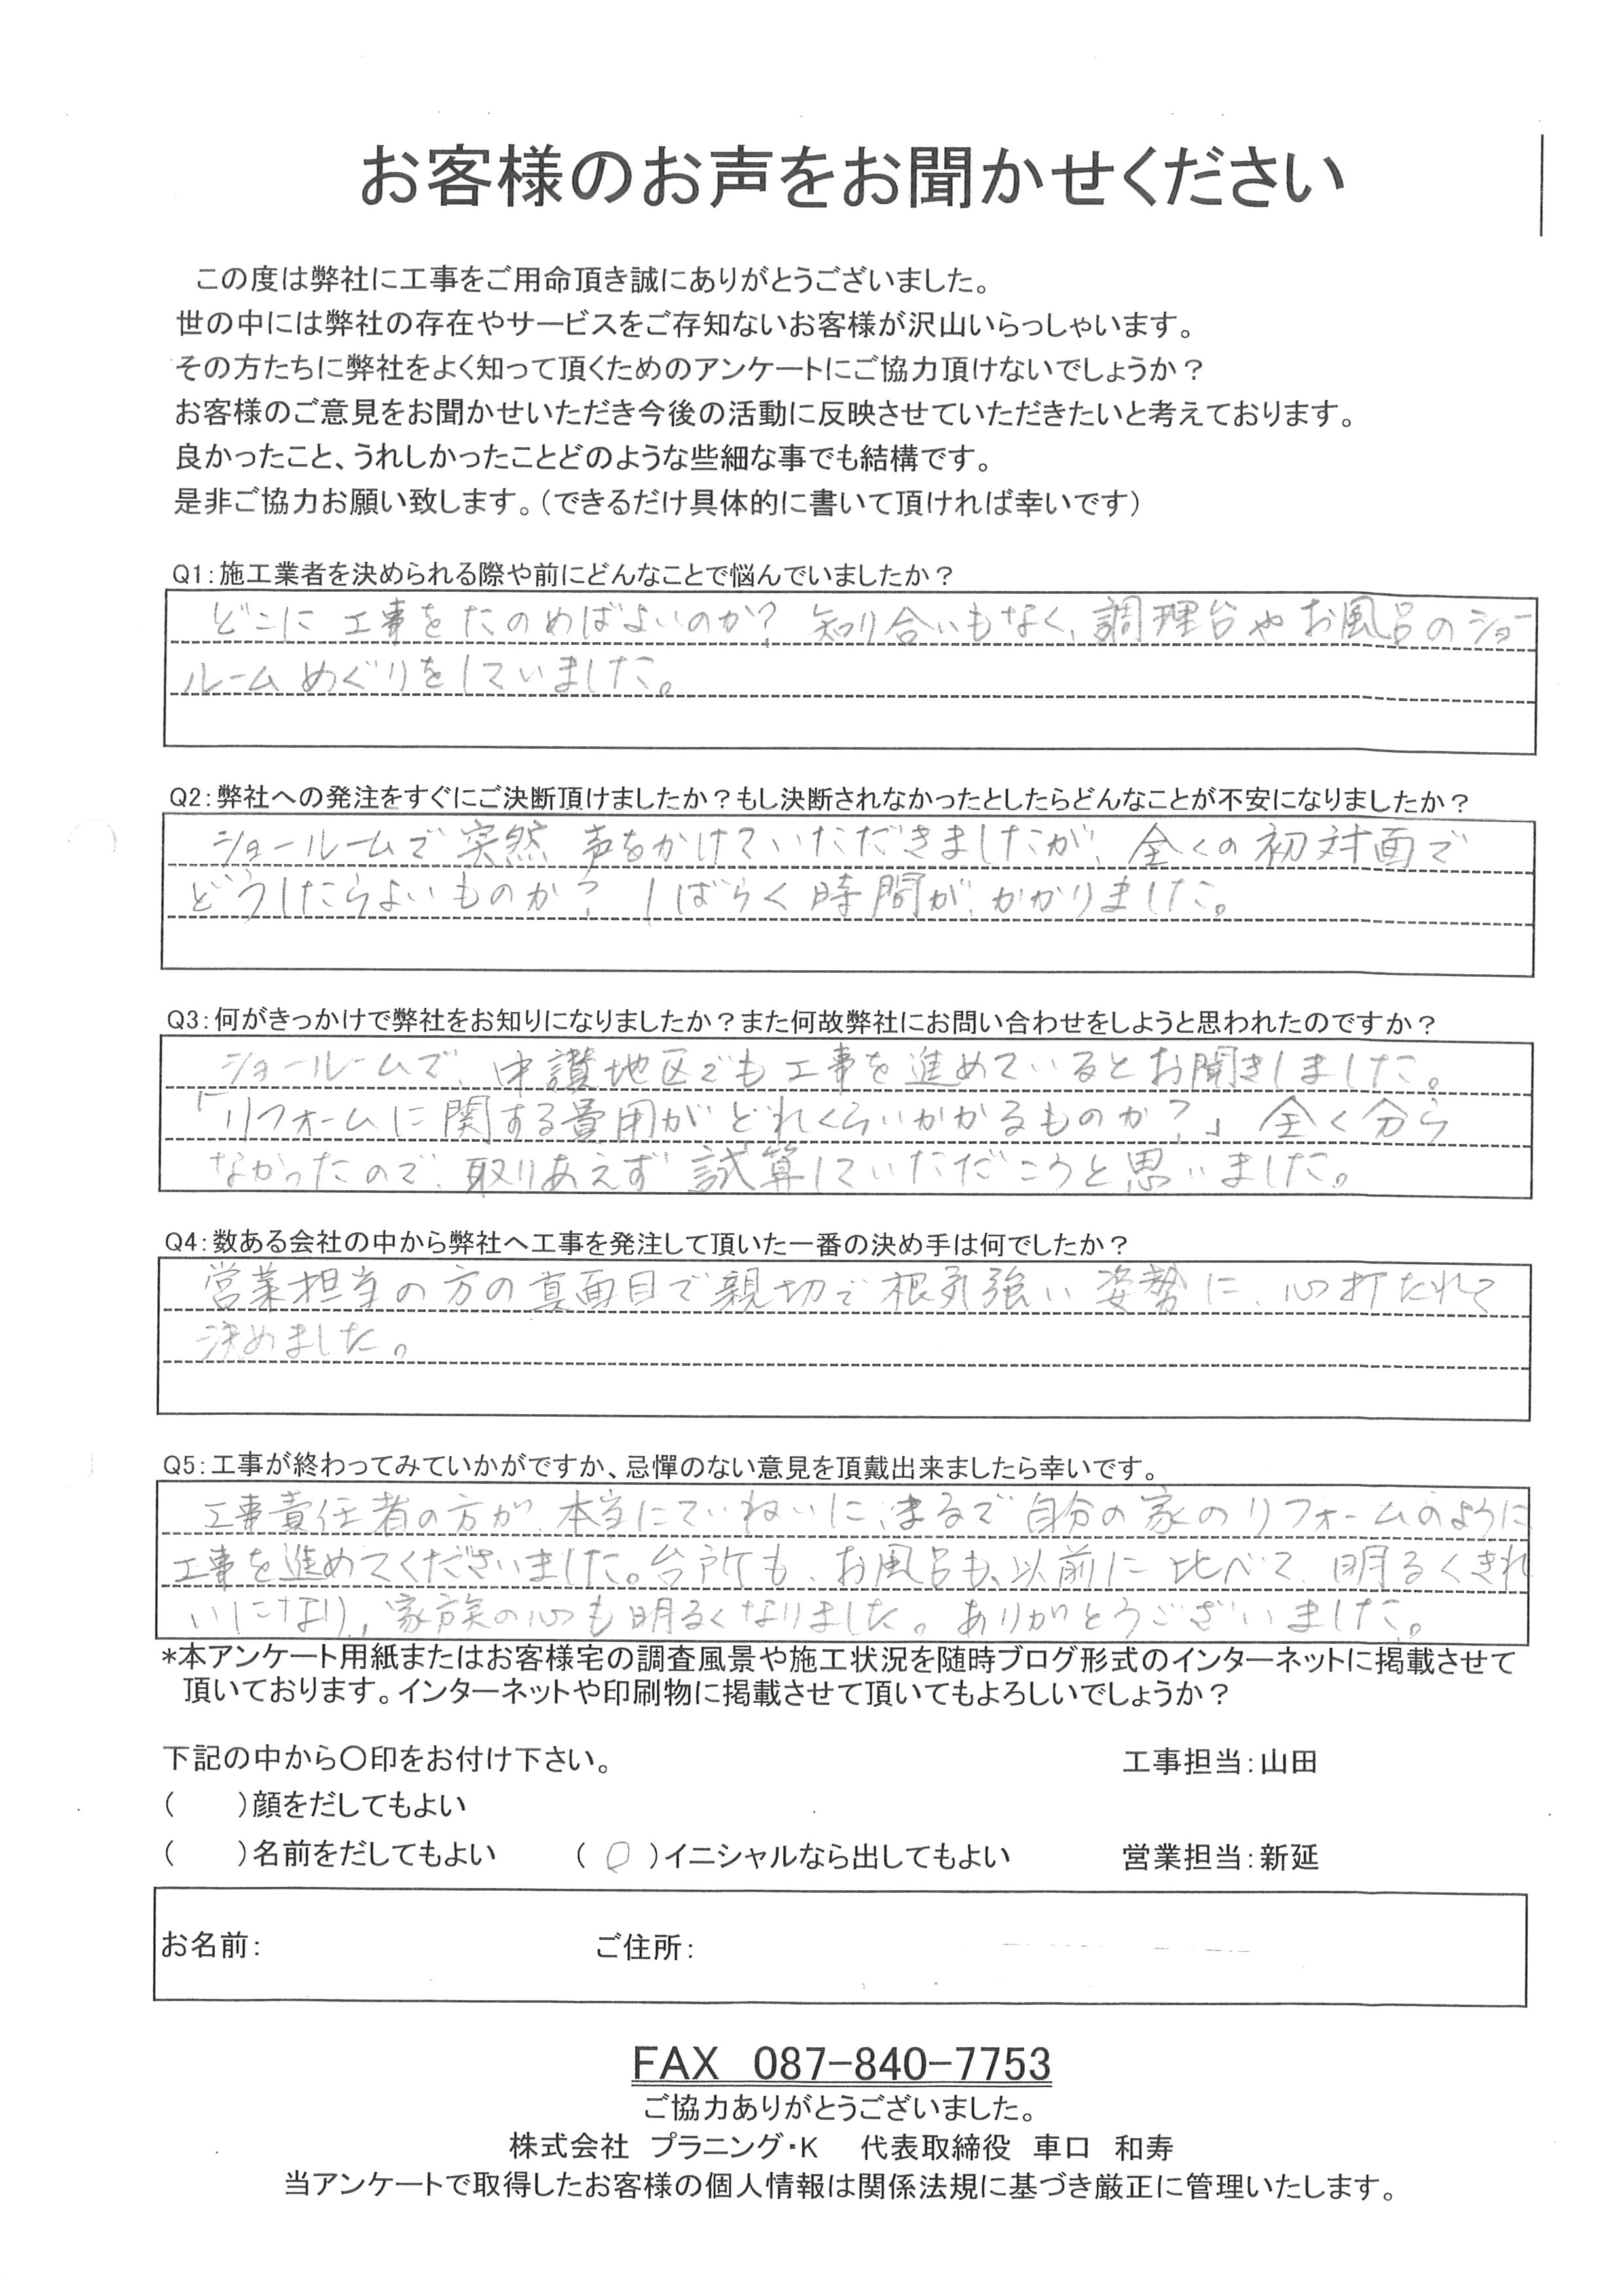 お客様のお声をお聞かせください
この度は弊社に工事をご用命頂き誠にありがとうございました。
世の中には弊社の存在やサービスをご存知ないお客様が沢山いらっしゃいます。
その方たちに弊社をよく知って頂くためのアンケートにご協力頂けないでしょうか？
お客様のご意見をお聞かせいただき今後の活動に反映させていただきたいと考えております。
良かったこと、うれしかったことどのような些細な事でも結構です。
是非ご協力お願い致します。（できるだけ具体的に書いて頂ければ幸いです）
Q1：施工業者を決められる際や前にどんなことで悩んでいましたか？
どこに工事をたのめばよいのか？知り合いもなく、調理台やお風呂のショー
ルームめぐりをしていました。
Q2：弊社への発注をすぐにご決断頂けましたか？もし決断されなかったとしたらどんなことが不安になりましたか？
ショールームで突然声をかけていただきましたが、全くの初対面で
どうしたらよいものか？しばらく時間がかかりました。
Q3：何がきっかけで弊社をお知りになりましたか？また何故弊社にお問い合わせをしようと思われたのですか？
ショールームで、中讃地区でも工事を進めているとお聞きしました。
「リフォームに関する費用がどれくらいかかるものか？」全く分ら
なかったので、取りあえず試算していただこうと思いました。
Q4：数ある会社の中から弊社へ工事を発注して頂いた一番の決め手は何でしたか？
営業担当の方の真面目で親切で根気強い姿勢に、心打たれて
決めました。
Q5：工事が終わってみていかがですか、忌憚のない意見を頂戴出来ましたら幸いです。
工事責任者の方が、本当にていねいに、まるで自分の家のリフォームのように
工事を進めてくださいました。台所も、お風呂も、以前に比べて、明るくきれ
いになり、家族の心も明るくなりました。ありがとうございました。
*本アンケート用紙またはお客様宅の調査風景や施工状況を随時ブログ形式のインターネットに掲載させて
頂いております。インターネットや印刷物に掲載させて頂いてもよろしいでしょうか？
下記の中から〇印をお付け下さい。 工事担当：山田
（　　）顔をだしてもよい
（　　）名前をだしてもよい （○）イニシャルなら出してもよい 営業担当：新延
お名前： ご住所：
FAX 087-840-7753
ご協力ありがとうございました。
株式会社 プラニング・K 代表取締役 車口 和寿
当アンケートで取得したお客様の個人情報は関係法規に基づき厳正に管理いたします。